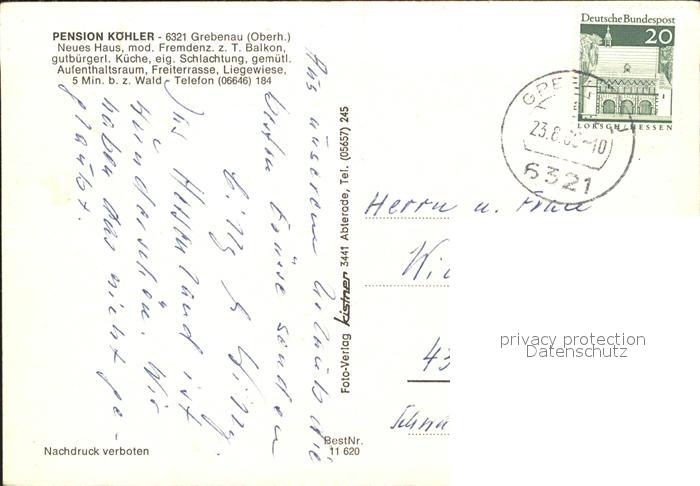 PENSION KÖHLER - 6321 Grebenau (Oberh.)
Neues Haus, mod. Fremdenz. z. T. Balkon,
gutbürgerl. Küche, eig. Schlachtung, gemütl.
Aufenthaltsraum, Freiterrasse, Liegewiese,
5 Min. b. z. Wald - Telefon (06646) 184
Aus unserem Urlaub die
besten Grüsse senden
Das Hessenland ist
wunderschön. Wir
haben das nicht ge-
glaubt.
Nachdruck verboten
BestNr.
11 620
Foto-Verlag kistner 3441 Abterode, Tel. (05657) 245
Deutsche Bundespost
20
LORSCH/HESSEN
23.8.
-10
6321
Herrn u. Frau
Wi
43
privacy protection
Datenschutz